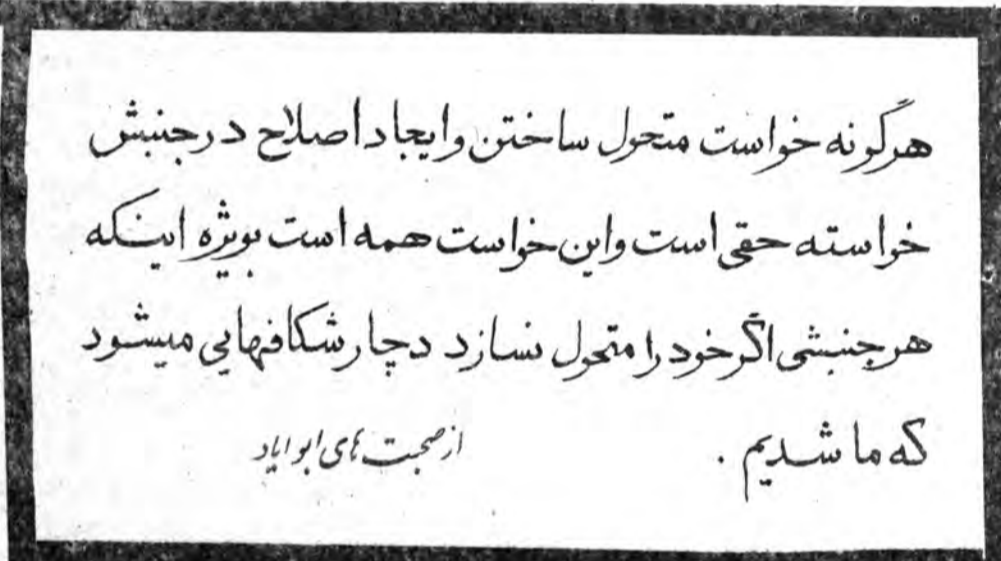 هرگونه خواست متحول ساختن وایجاد اصلاح درجنبش
خواسته حقی است واین خواست همه است بویژه اینکه
هرجنبشی اگرخود را متحول نسازد دچار شکافهایی میشود
که ما شدیم .
از صحبت های ابو ایاد